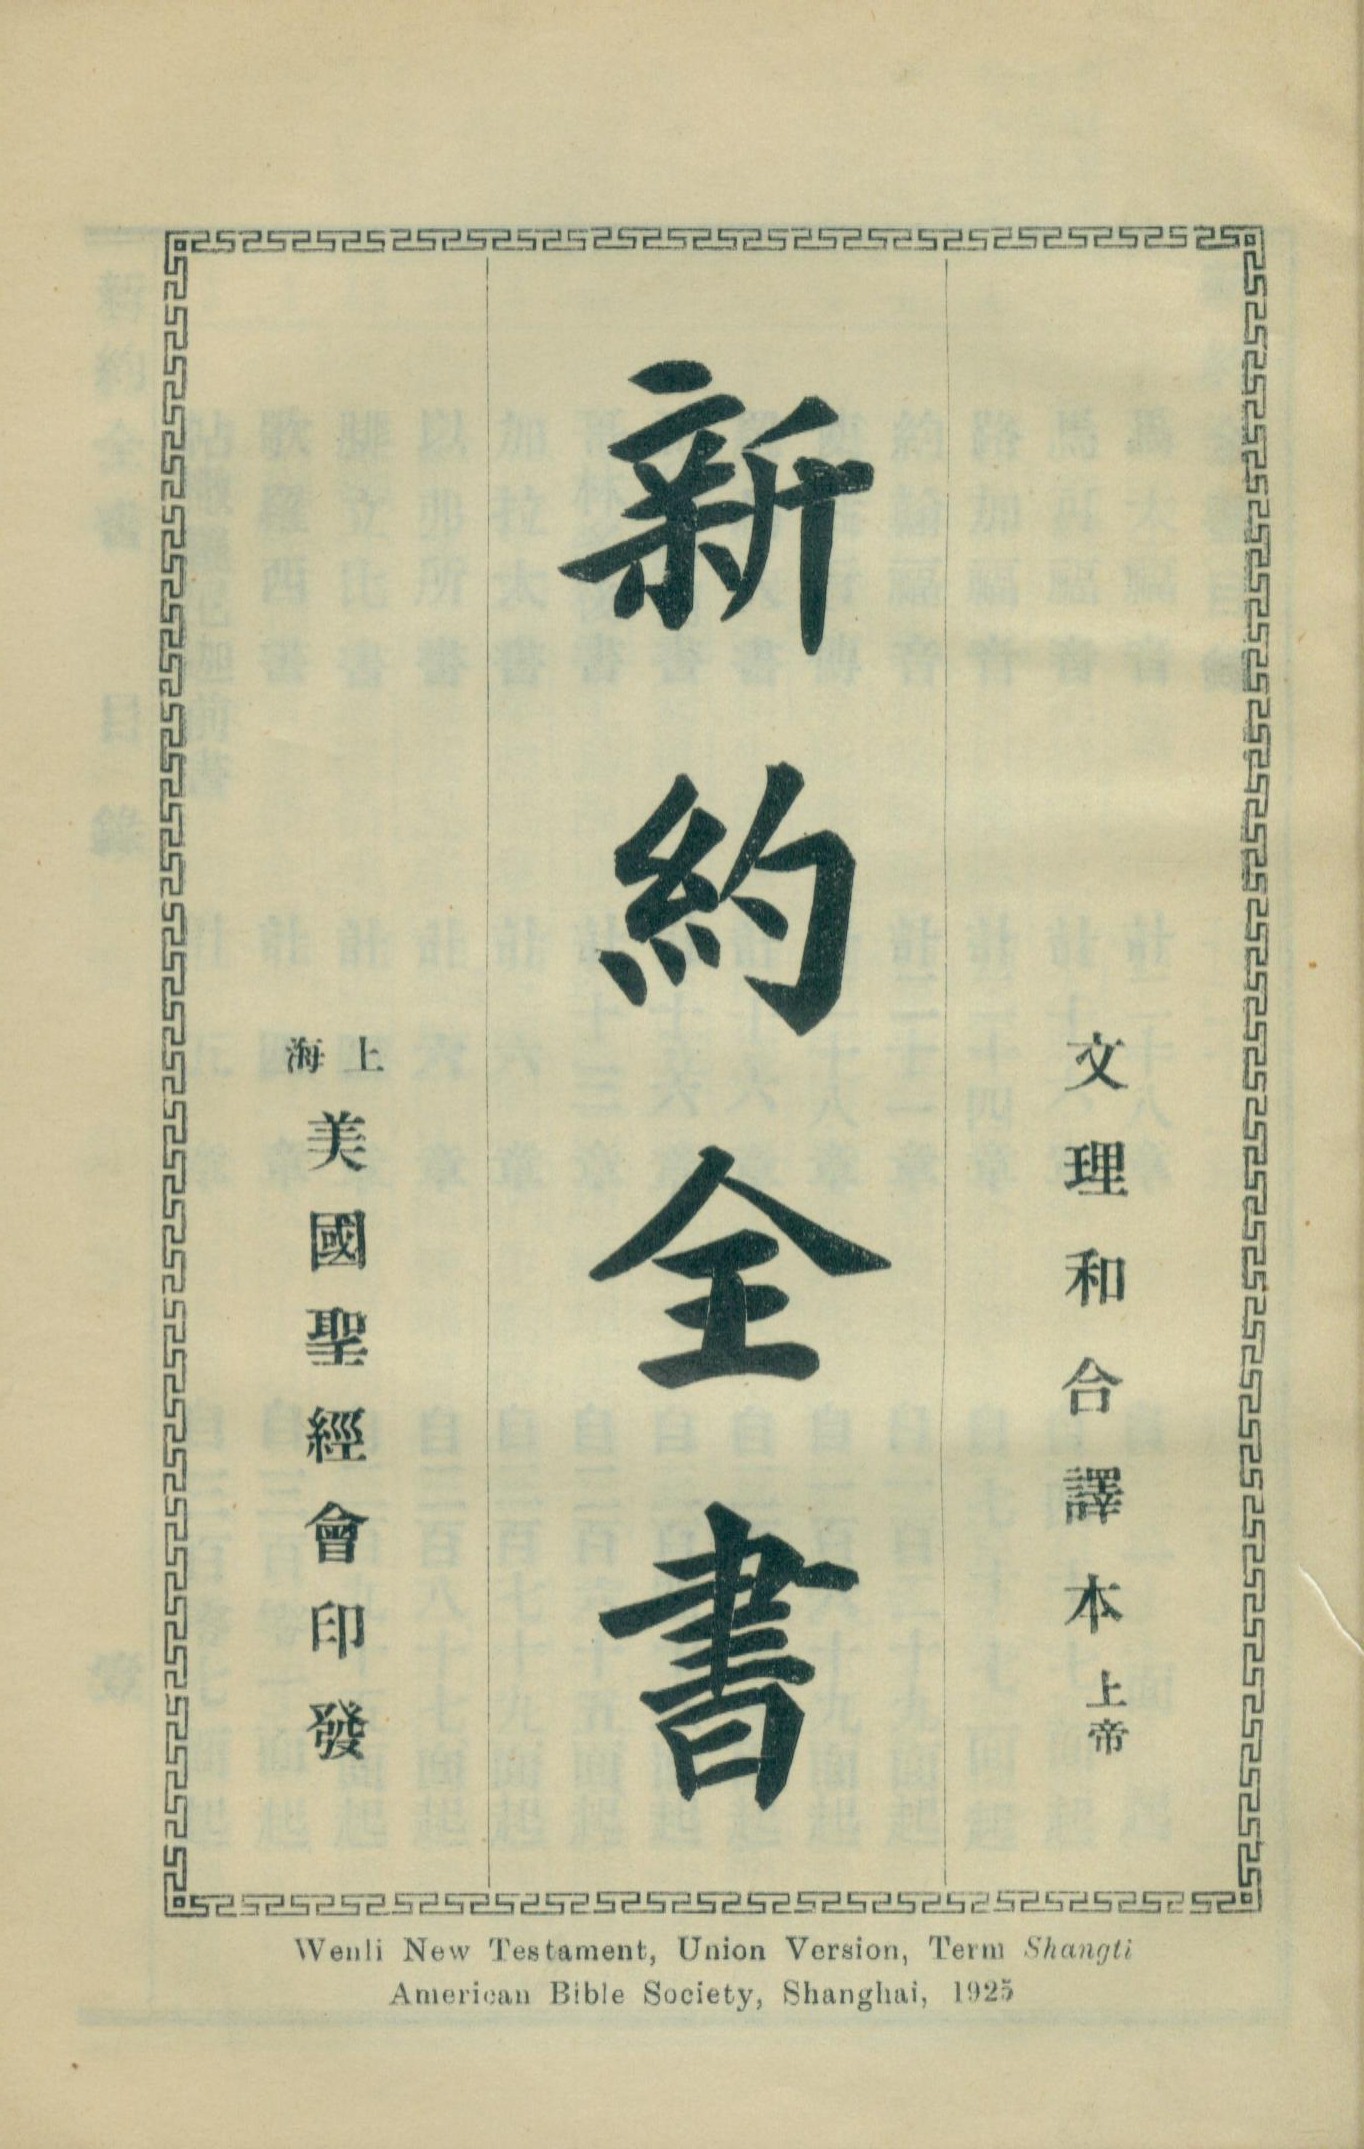 文理和合譯本 上帝
新約全書
上海
美國聖經會印發
Wenli New Testament, Union Version, Term Shangti
American Bible Society, Shanghai, 1925